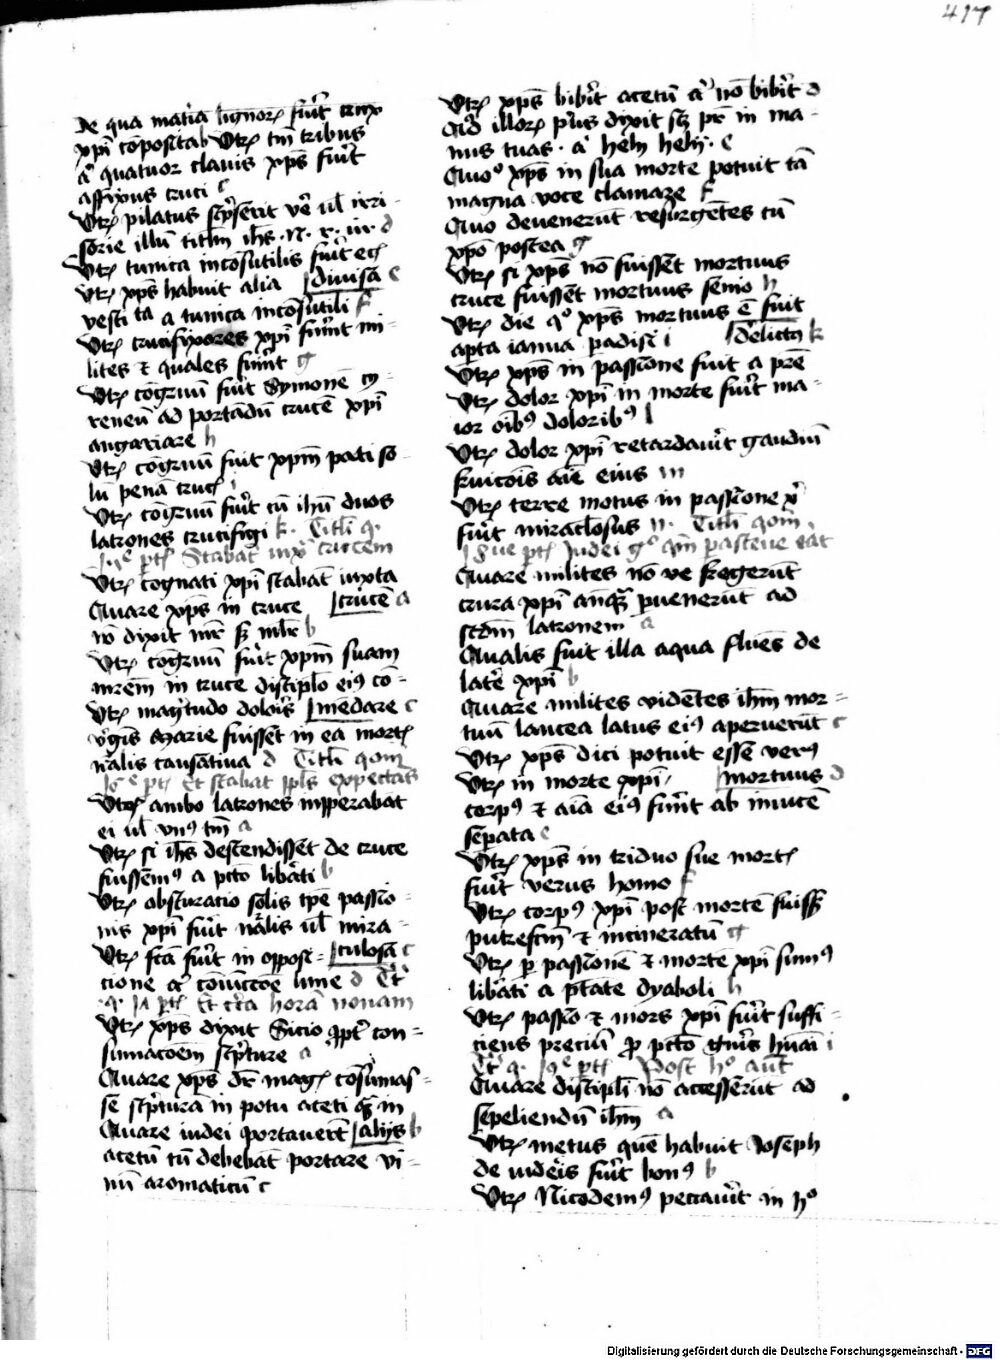 417
De qua mat̄ia lignoꝝ fuīt crux
xp̄i cōposita b Utrꝫ tm̄ tribus
aū quatuor clauis xp̄s fuīt
affixus cruci c
Utrꝫ pilatus sc̄pserit vē ul̄ irri-
sorie illū titl̄m ih̄s . n . r . iu . d
Utrꝫ tunica incōsutilis fuīt eꝗ
Utrꝫ xp̄s habuit alia diuisā e
vesti ta a tunica incōsutili f
Utrꝫ crucifixores xp̄i fuīnt mi-
lites ⁊ quales fuīnt g
Utrꝫ cōgruū fuīt Symonē cy-
reneū ad portādū crucē xp̄i
angariare h
Utrꝫ cōgruū fuit xp̄m pati so-
lū penā cruc̄ i
Utrꝫ cōgruū fuīt cū ih̄u duos
latrones crucifigi k . Titl̄i q̄.
ptꝫ Stabāt iux̄ crucem
Utrꝫ cognati xp̄i stabāt iuxta
Quare xp̄s in cruce crucē a
nō dixit mr̄ sꝫ ml̄r b
Utrꝫ cōgruū fuīt xp̄m suam
mrēm in cruce discipl̄o eiꝰ cō-
Utrꝫ maḡtudo dolor̄s mēdare c
v̄gīs marie fuisset in ea mortꝫ
nr̄alis causatiua d Titl̄i qom̄
ptꝫ Et stabat ipl̄s expectās
Utrꝫ ambo latrones inpperabāt
ei ul̄ vnꝰ tm̄ a
Utrꝫ si ih̄s descendisset de cruce
fuissemꝰ a pctō libāti b
Utrꝫ obscuratio solis tp̄e passio-
nis xp̄i fuīt nr̄alis ul̄ mira-
Utrꝫ fc̄a fuīt in oppos- culosā c
cione aū cōiūccōe lune d
ptꝫ Et c̄ca horā nonam
Utrꝫ xp̄s dixit Sicio ꝓpt̄ con-
sumacōem sc̄pture a
Quare xp̄s dr̄ magꝫ cōsumas-
se sc̄pturā in potu aceti qꝫ in
Quare iudei portauert̄ alijs b
acetū cū debebāt portare vi-
nū aromaticū c
Utrꝫ xp̄s bibīt acetū aū nō bibīt d
Qd̄ illoꝝ pr̄us dixit sꝫ pr̄ in ma-
nus tuas . aū hely hely . e
Quōꝰ xp̄s in sua morte potuit tā
magna voce clamare f
Quo deuenerūt resurgētes cū
xpō postea g
Utrꝫ si xp̄s nō fuisset mortuus
cruce fuisset mortuus senio h
Utrꝫ die qꝰ xp̄s mortuus ē fuit
ap̄ta ianua padisi i delictꝰ k
Utrꝫ xp̄s in passione fuit a prē
Utrꝫ dolor xp̄i in morte fuīt ma-
ior oībꝰ doloribꝰ l
Utrꝫ dolor xp̄i retardauīt gaudiū
fruicōis aīe eius m
Utrꝫ terre motus in passione xp̄i
fuīt miracl̄osus n . Titl̄i qom̄
ptꝫ Judei gꝰ qm̄ pasceue eāt
Quare milites nō ve fregerūt
crura xp̄i anꝗ̄ ꝑuenerūt ad
scdm̄ latronem a
Qualis fuit illa aqua fluēs de
later̄ xp̄i b
Quare milites vidētes ih̄m mor-
tuū lancea latus eiꝰ aperuerūt c
Utrꝫ xp̄s dici potuit esse verꝰ
Utrꝫ in morte xp̄i mortuus d
corpꝰ ⁊ aīa eiꝰ fuīnt ab inuicē
sep̄ata e
Utrꝫ xp̄s in triduo sue mortꝫ
fuīt verus homo f
Utrꝫ corpꝰ xp̄i post mortē fuissꝫ
putrefcm̄ ⁊ incineratū g
Utrꝫ ꝑ passionē ⁊ mortē xp̄i sumꝰ
libāti a ptāte dyaboli h
Utrꝫ passio ⁊ mors xp̄i fuīt suffi-
ciens preciū ꝓ pctō gn̄is hūāi i
ptꝫ Post hꝰ aūt
Quare discipl̄i nō accesserūt ad
sepeliendū ih̄m a
Utrꝫ metus quē habuit Joseph
de iudeis fuīt bonꝰ b
Utrꝫ Nicodemꝰ peccauīt in hꝰ
Digitalisierung gefördert durch die Deutsche Forschungsgemeinschaft - DFG